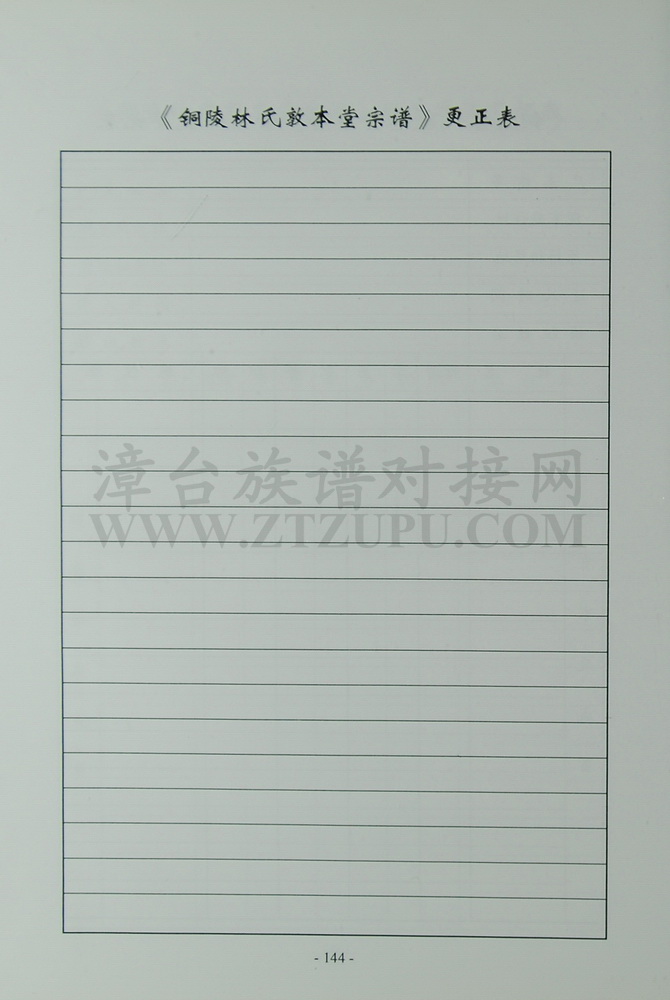 《铜陵林氏敦本堂宗谱》更正表
漳台族谱对接网
WWW.ZTZUPU.COM
- 144 -